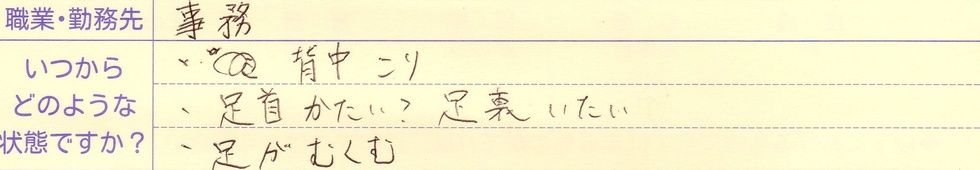 職業・勤務先 事務
いつから
どのような
状態ですか?
、 背中 こり
、 足首 かたい? 足裏 いたい
、 足が むくむ